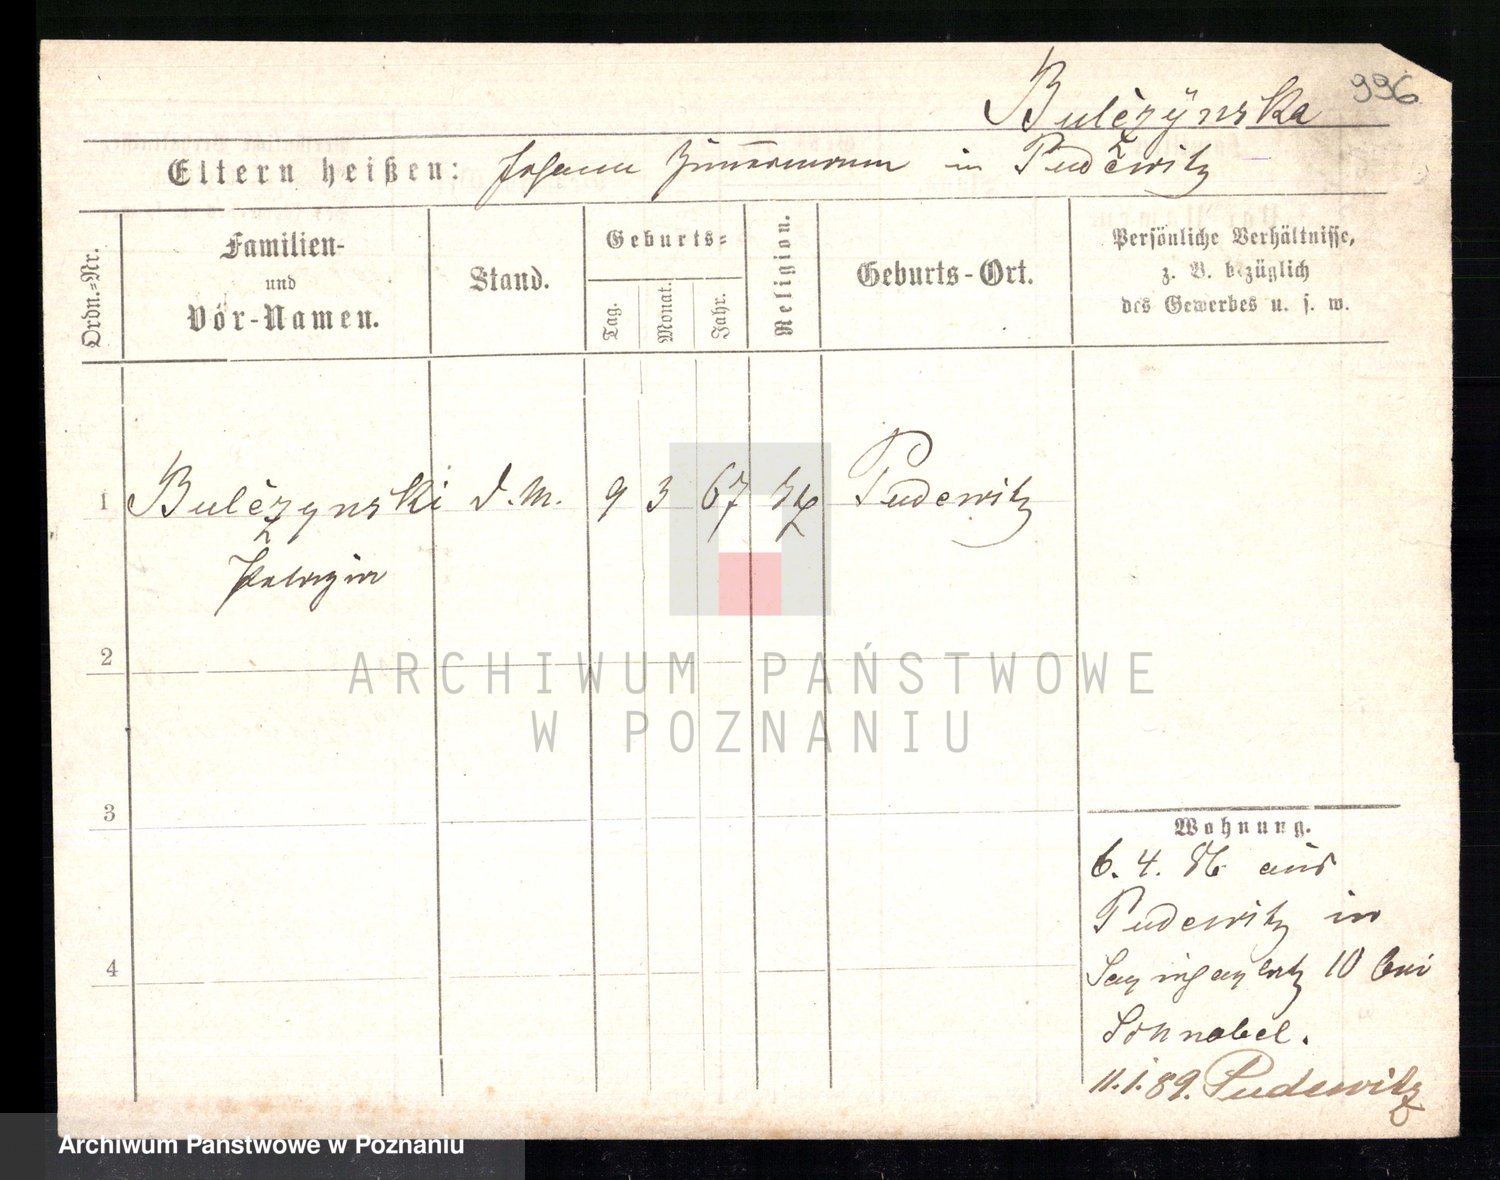 996
Bulczÿnska
Eltern heißen: Johann Zimmermann in Pudewitz
Ordn.=Nr.
Familien-
und
Vor-Namen.
Stand.
Geburts=
Tag.
Monat.
Jahr.
Religion.
Geburts-Ort.
Persönliche Verhältnisse,
z. B. bezüglich
des Gewerbes u. s. w.
1 Bulczynski d. M. 9 3 67 Pudewitz
2
3
4
Wohnung.
6. 4. 86 aus
Pudewitz in
Sapiehaplatz 10 bei
Schnabel.
11.1.89. Pudewitz
ARCHIWUM PAŃSTWOWE
W POZNANIU
Archiwum Państwowe w Poznaniu